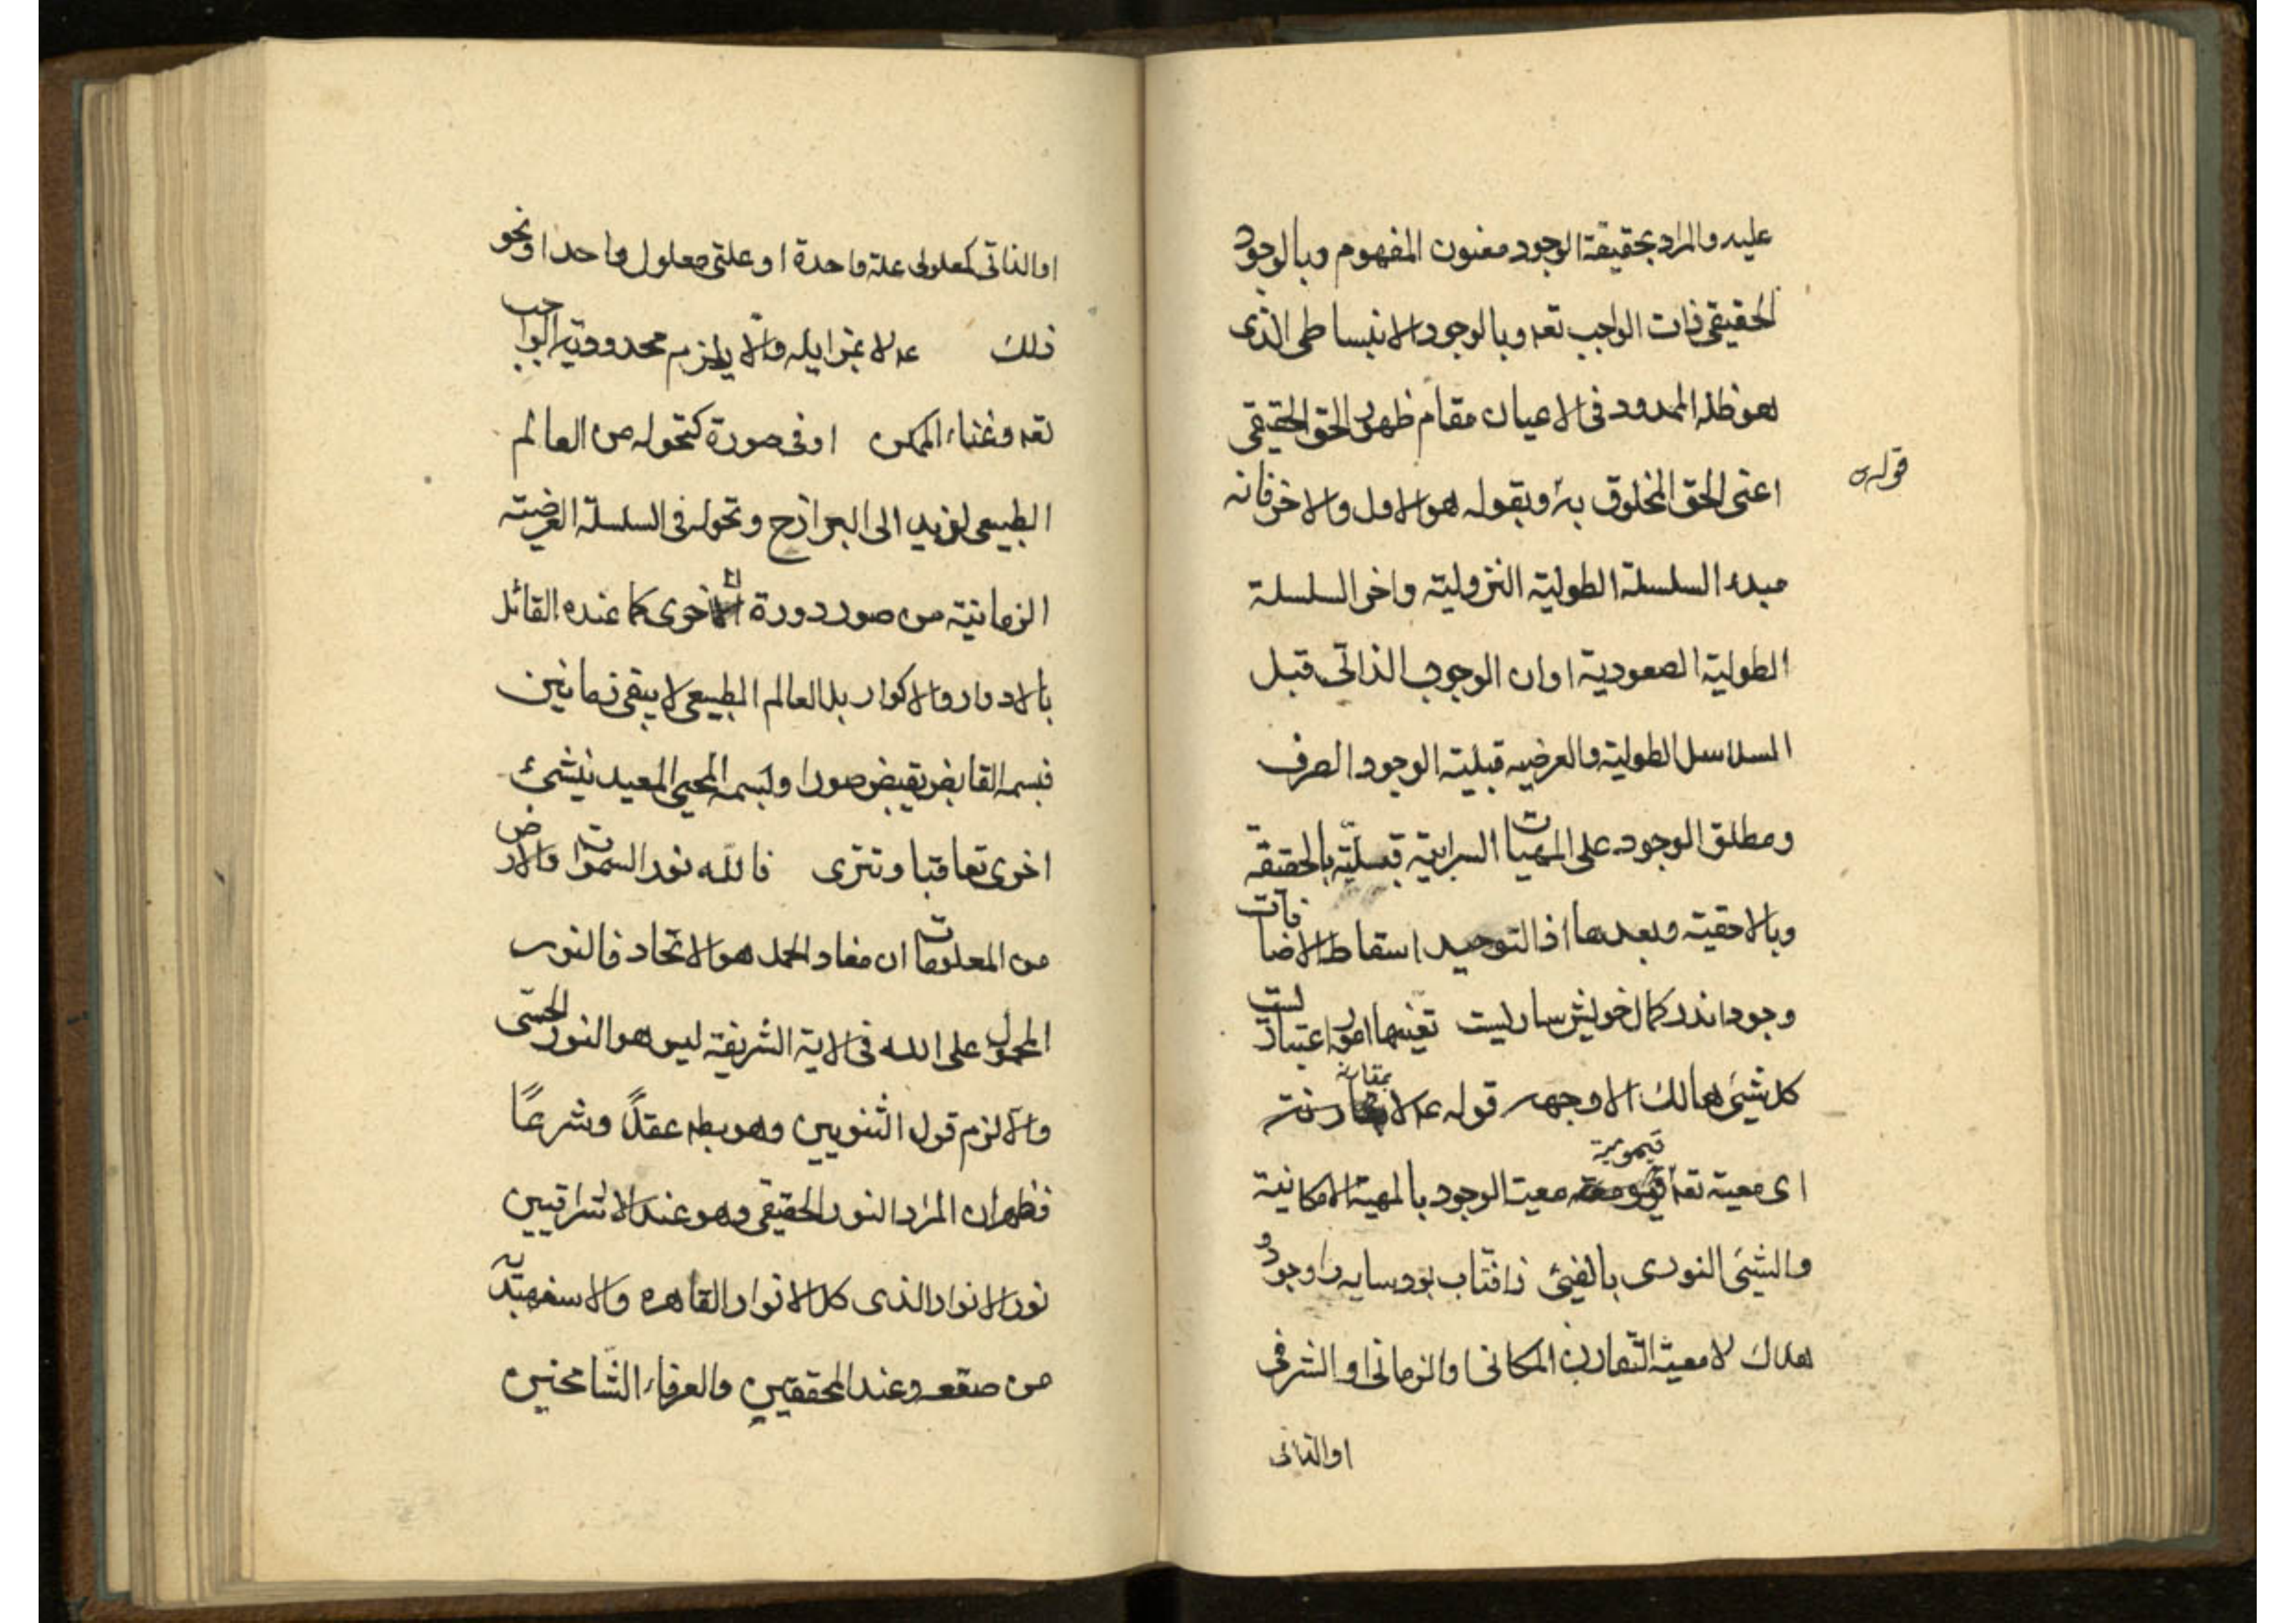 عليه والمراد بحقيقة الوجود معنون المفهوم وبالوجود
الحقيقى ذات الواجب تعه وبالوجود الانبساطى الذى
هو ظله الممدود فى الاعيان مقام ظهور الحق الحقيقى
قوله
اعنى الحق المخلوق به وبقوله هو الاول والاخر فانه
مبدء السلسلة الطولية النزولية واخر السلسلة
الطولية الصعودية اوان الوجوب الذاتى قبل
السلاسل الطولية والعرضيه قبلية الوجود الصرف
ومطلق الوجود على المهيات السرابية قبلية بالحقيقه
وبالاحقية وبعدها اذ التوحيد اسقاط الاضافات
وجود اندر كمال خويش ساريست تعينها امور اعتباريست
كل شيئ هالك الا وجهه قوله عه لا بمقارنة
اى معيته تعه قيومية معيت الوجود بالمهية الامكانية
والشيئ النورى بالفيئ ز افتاب بود سايه را وجود و
هلاك لا معية التقارن المكانى والزمانى او الشرفى
او الذاتى
او الذاتى كمعلولى علة واحدة او علتى معلول واحد او نحو
ذلك عه لا بمزايله والا يلزم محدودية الواجب
تعه وغناء الممكن او فى صورة كتحوله من العالم
الطبيعى لزيد الى البرازخ وتحوله فى السلسلة العرضية
الزمانية من صور دورة الى اخرى كما عنده القائل
بالادوار والاكوار بل العالم الطبيعى لا يبقى زمانين
فبسمه القابض يقبض صورا وبسمه المحيى المعيد ينشئ
اخرى تعاقبا وتترى فالله نور السموات والارض
من المعلومات ان مفاد الحمل هو الاتحاد فالنور
المحمول على الله فى الاية الشريفة ليس هو النور الحسى
والا لزم قول الثنويين وهو بطه عقلاً وشرعًا
فظهر ان المراد النور الحقيقى وهو عند الاشراقيين
نور الانوار الذى كل الانوار القاهره والاسفهبدية
من صقعه وعند المحققين والعرفاء الشامخين